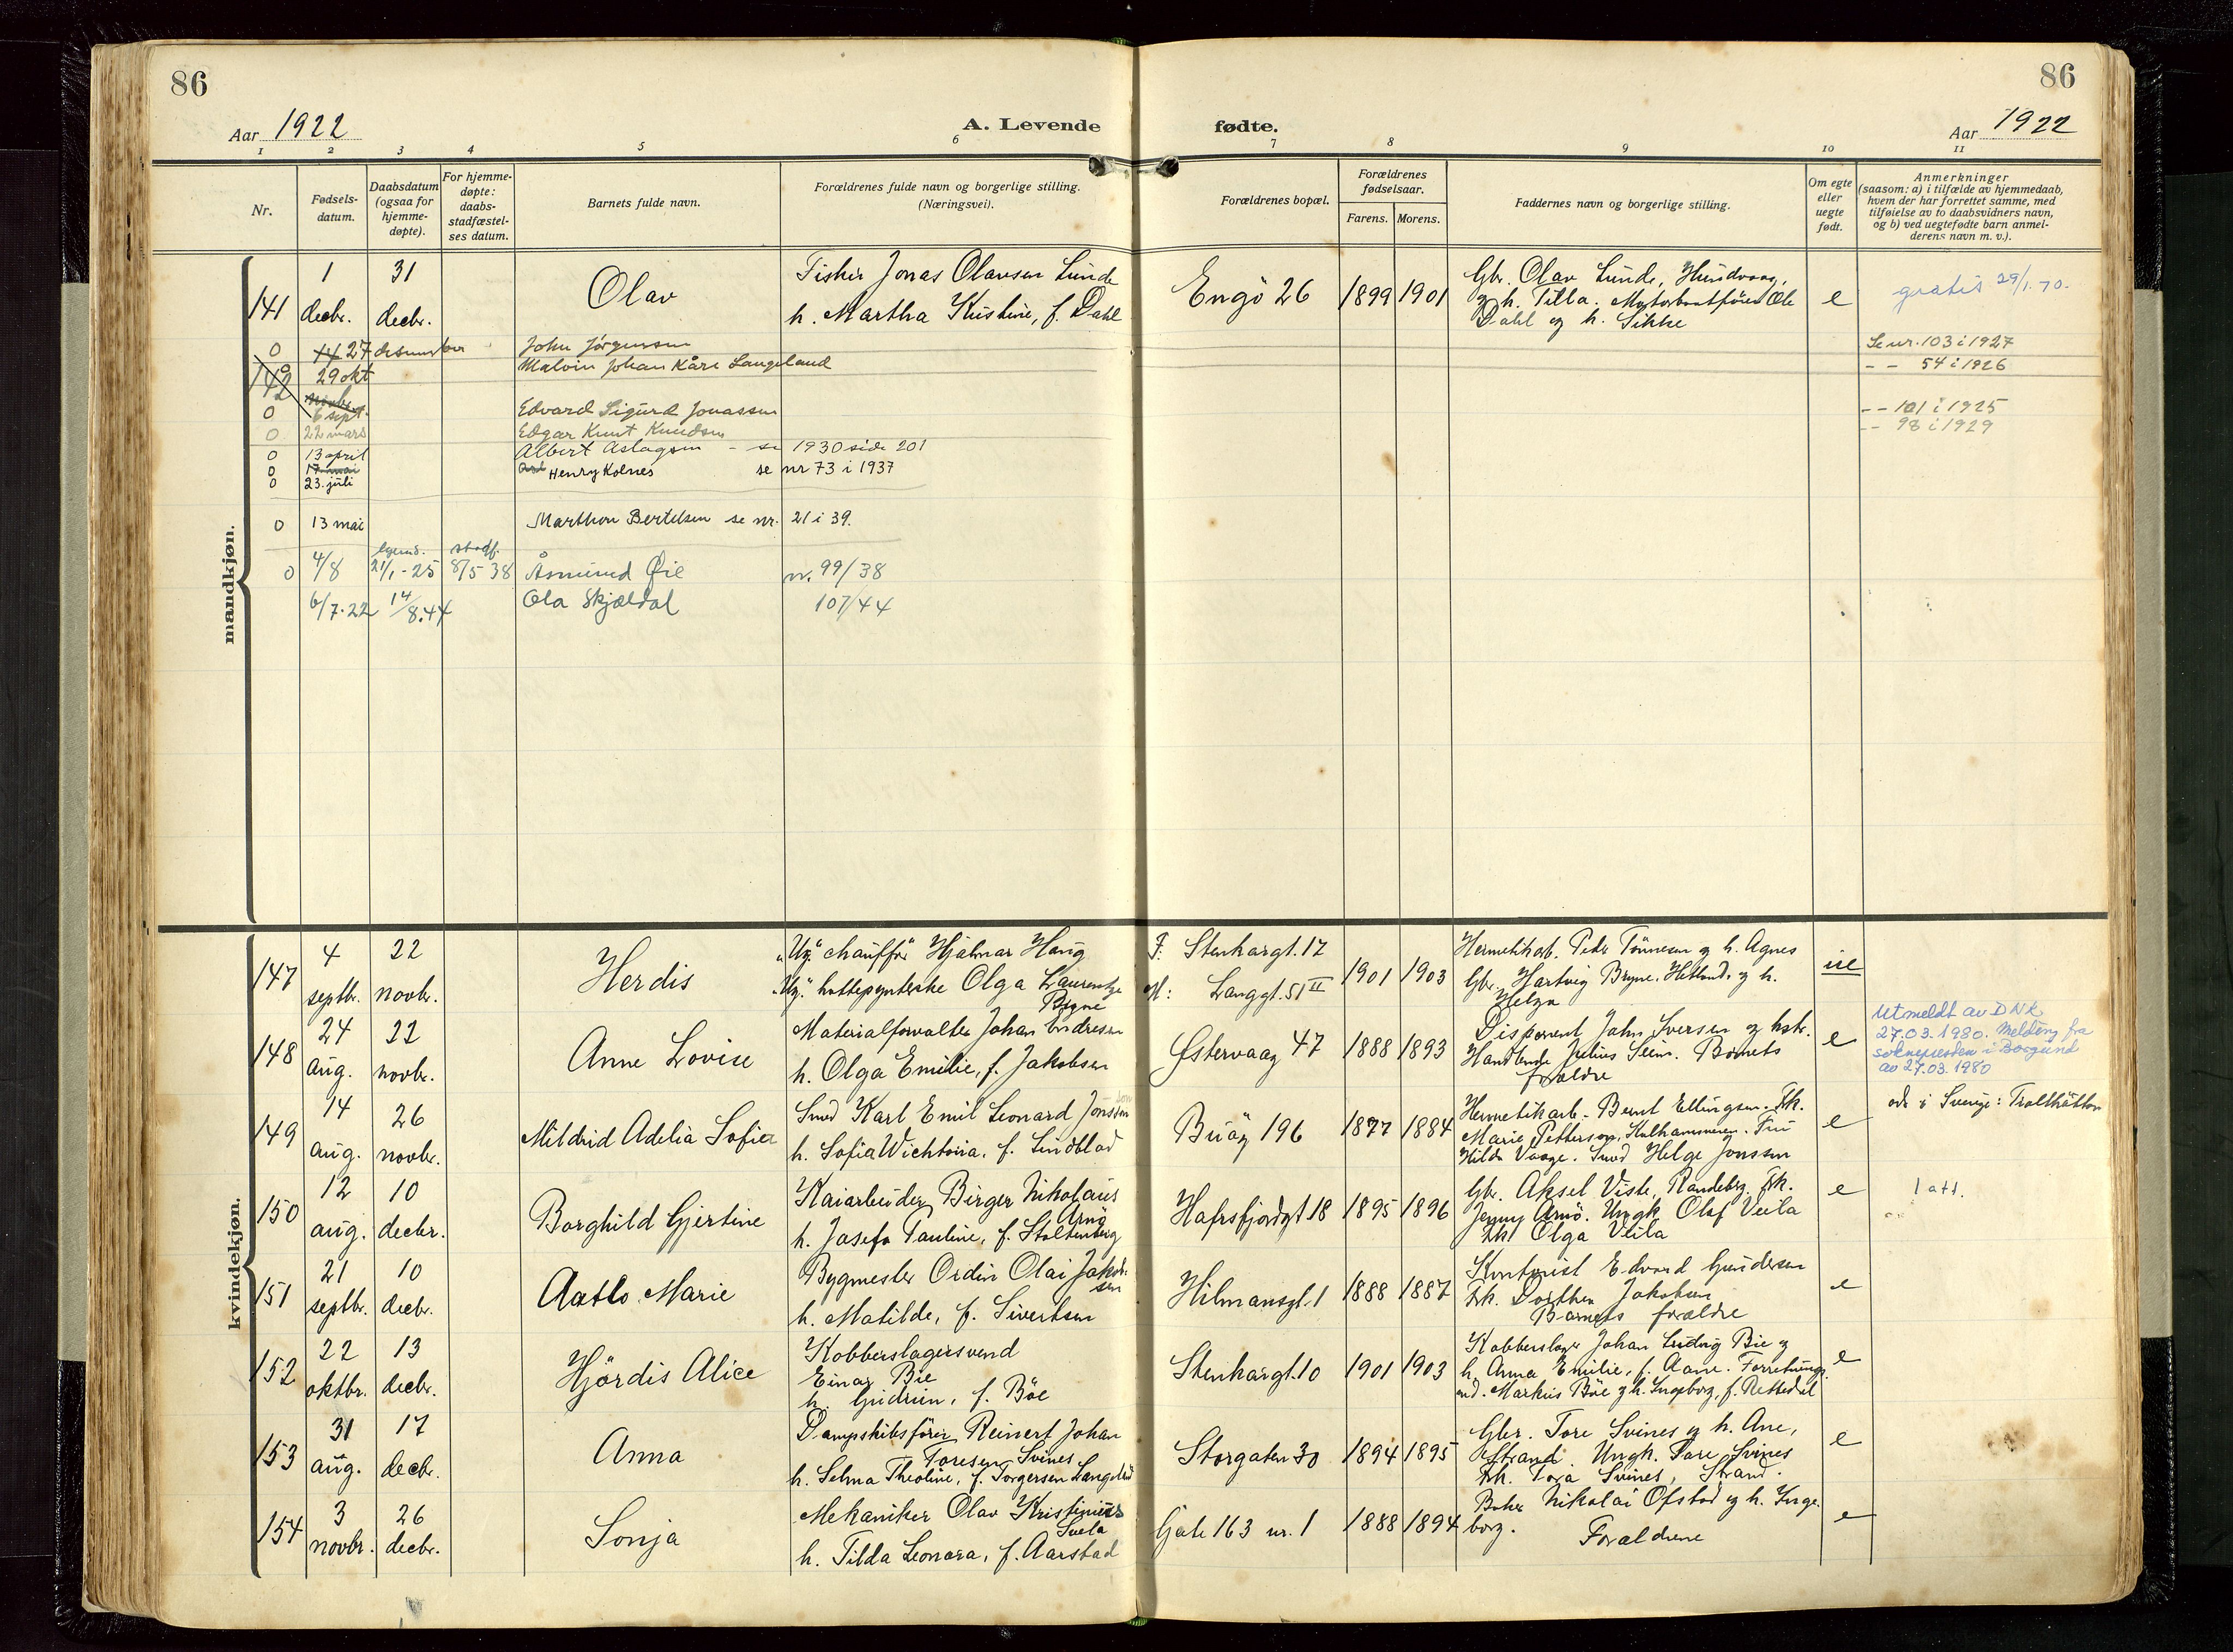 86
86
Aar 1922
A. Levende fødte.
Aar 1922
1 2 3 4 5 6 7 8 9 10 11
Nr.
Fødsels-
datum.
Daabsdatum
(ogsaa for
hjemme-
døpte).
For hjemme-
døpte:
daabs-
stadfæstel-
ses datum.
Barnets fulde navn.
Forældrenes fulde navn og borgerlige stilling.
(Næringsvei).
Forældrenes bopæl.
Forældrenes
fødselsaar.
Farens. Morens.
Faddernes navn og borgerlige stilling.
Om egte
eller
uegte
født.
Anmerkninger
(saasom: a) i tilfælde av hjemmedaab,
hvem der har forrettet samme, med
tilføielse av to daabsvidners navn,
og b) ved uegtefødte barn anmel-
derens navn m. v.).
mandkjøn.
141
1
decbr.
31
decbr.
Olav
Fisker Jonas Olausen Lunde
h. Martha Kristine, f. Dahl
Engö 26
1899 1901
Gbr. Olav Lunde, Hundvaag,
og h. Tilla. Motorbaatförer Ole
Dahl og h. Sikke
e
gratis 29/1.70.
0 27 desember John Jörgensen Se nr. 103 i 1927
142 29 okt Malvin Johan Kåre Langeland - - 54 i 1926
0 6 sept. Edvard Sigurd Jonassen - - 101 i 1925
0 22 mars Edgar Knut Knudsen - - 98 i 1929
0 13 april Albert Aslagsen - se 1930 side 201
0 17 mai Henry Kolnes se nr 73 i 1937
0 23. juli
0 13 mai Marthon Bertelsen se nr. 21 i 39.
stadf.
0 4/8 21/1-25 8/5 38 Åsmund Øie nr. 99/38
6/7.22 14/8.44 Ola Skjældal 107/44
kvindekjøn.
147
4
septbr.
22
novbr.
Herdis
"Ug." chauffør Hjalmar Haug
"Ug." hattepynterske Olga Laurentze
Bryne
F. Stenhargt. 12
M: Langgt. 51 II
1901 1903
Hermetikarb. Peder Tönnesen og h. Agnes
Gbr. Hartvig Bryne, Hetland, og h.
Helga
ue
148
24
aug.
22
novbr.
Anne Lovise
Materialforvalter Johan Endresen
h. Olga Emilie, f. Jakobsen
Østervaag 47
1888 1893
Disponent John Iversen og hstr.
Handlende Julius Seim. Barnets
forældre
e
Utmeldt av DNK
27.03.1980. Melding fra
soknepresten i Borgund
av 27.03.1980
149
14
aug.
26
novbr.
Mildrid Adelia Sofie
Smed Karl Emil Leonard Jonsson
h. Sofia Wichtoria, f. Lindblad
Buöy 196
1877 1884
Hermetikarb. Bernt Ellingsen. Frk.
Marie Petterson, Kulhammeren. Fru
Hilda Vaage. Smed Helge Jonsson
e
i Sverige: Trollhättan
150
12
aug.
10
decbr.
Borghild Gjertine
Kaiarbeider Birger Nikolaus
Arnö
h. Josefa Pauline, f. Stoltenberg
Hafrsfjordgt 18
1895 1896
Gbr. Aksel Viste, Randeberg. Frk.
Jenny Arnö. Ungk. Olaf Veila
Frk Olga Veila
e
1 att.
151
21
septbr.
10
decbr.
Aatlo Marie
Bygmester Ordin Olai Jakob-
sen
h. Matilde, f. Sivertsen
Hilmarsgt. 1
1888 1887
Kontorist Edvard Gundersen
Frk. Dorthea Jakobsen
Barnets forældre
e
152
22
oktbr.
13
decbr.
Hjördis Alice
Kobberslagersvend
Einar Bie
h. Gudrun, f. Böe
Stenhargt. 10
1901 1903
Kobberslager Johan Ludvig Bie og
h. Anna Emilie, f. Aane. Forretnings-
md. Markus Böe og h. Ingeborg, f. Rettedal
e
153
31
aug.
17
decbr.
Anna
Dampskibsförer Reinert Johan
Toresen Svines
h. Selma Theoline, f. Torgersen Langeland
Storgaten 30
1894 1895
Gbr. Tore Svines og h. Ane,
Strand. Ungk. Tore Svines
Frk. Tora Svines, Strand.
e
154
3
novbr.
26
decbr.
Sonja
Mekaniker Olav Kristinius
Svela
h. Tilda Leonora, f. Aarstad
Gate 163 nr. 1
1888 1894
Baker Nikolai Ofstad og h. Inge-
borg. Forældrene
e